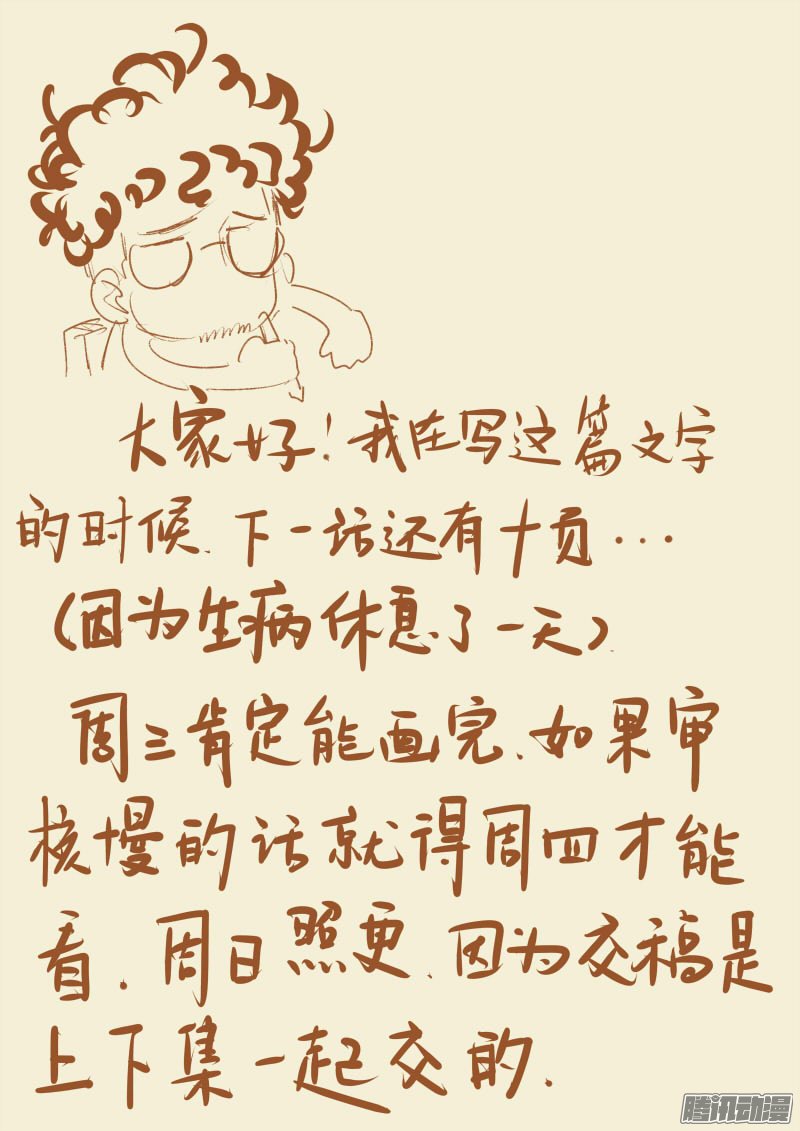 大家好!我在写这篇文字
的时候、下一话还有十页...
(因为生病休息了一天)、
周三肯定能画完、如果审
核慢的话就得周四才能
看.周日照更、因为交稿是
上下集一起交的、
腾讯动漫